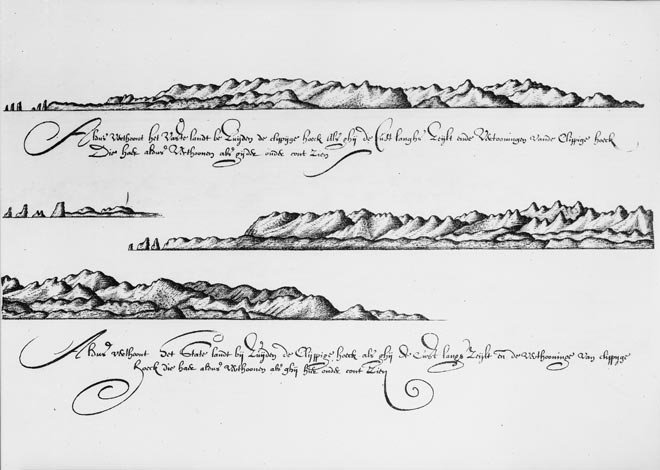 Aldus Verthoont het Vaste landt be Zuijden de clippige hoeck Als ghij de Cust langhs Zeijlt ende Vertooningen vande Clippige hoeck
Die haer aldus Verthoonen als gij der onder cont Zien
Aldus Verthoont Het State landt bij Zuijden de Clippige hoeck als ghij de Cust langs Zeijlt en de Verthooninge van clippige
Hoeck die haer aldus Verthoonen als ghij onder cont Zien